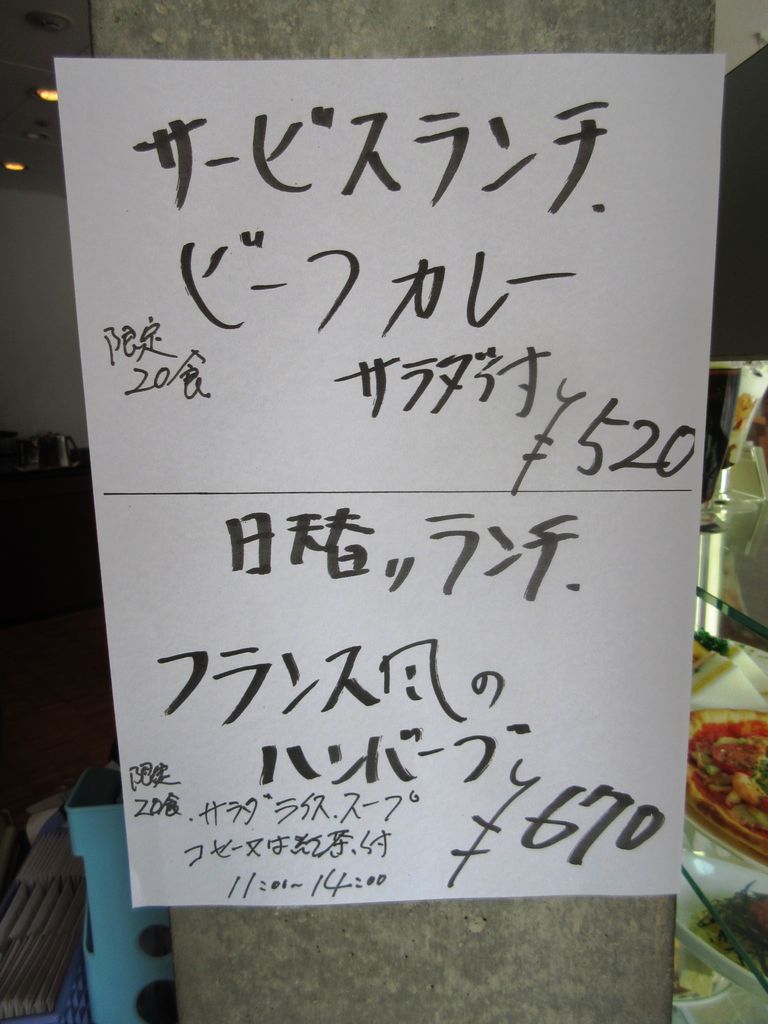 サービスランチ
ビーフカレー
限定
20食
サラダ付
¥520
日替リランチ
フランス風の
ハンバーグ
限定
20食
サラダライス.スープ
コーヒー又は紅茶付
¥670
11:00~14:00